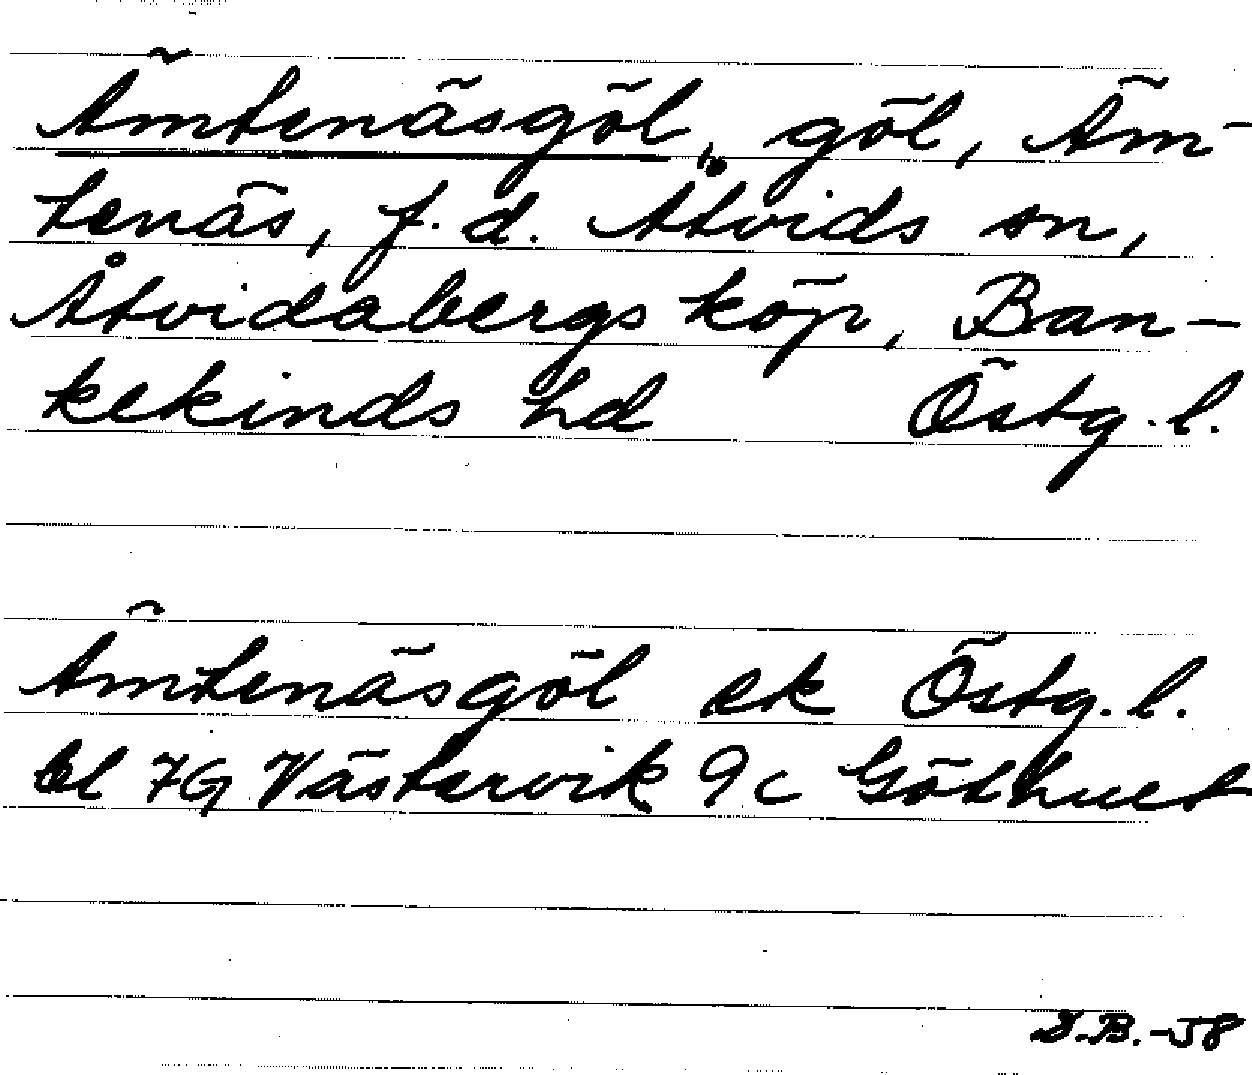 Ämtenäsgöl, göl, Äm-
tenäs, f.d. Åtvids sn,
Åtvidabergs köp, Ban-
kekinds hd Östg.l.
Ämtenäsgöl ek Östg.l.
bl 7G Västervik 9c Göthult
S.B.-58